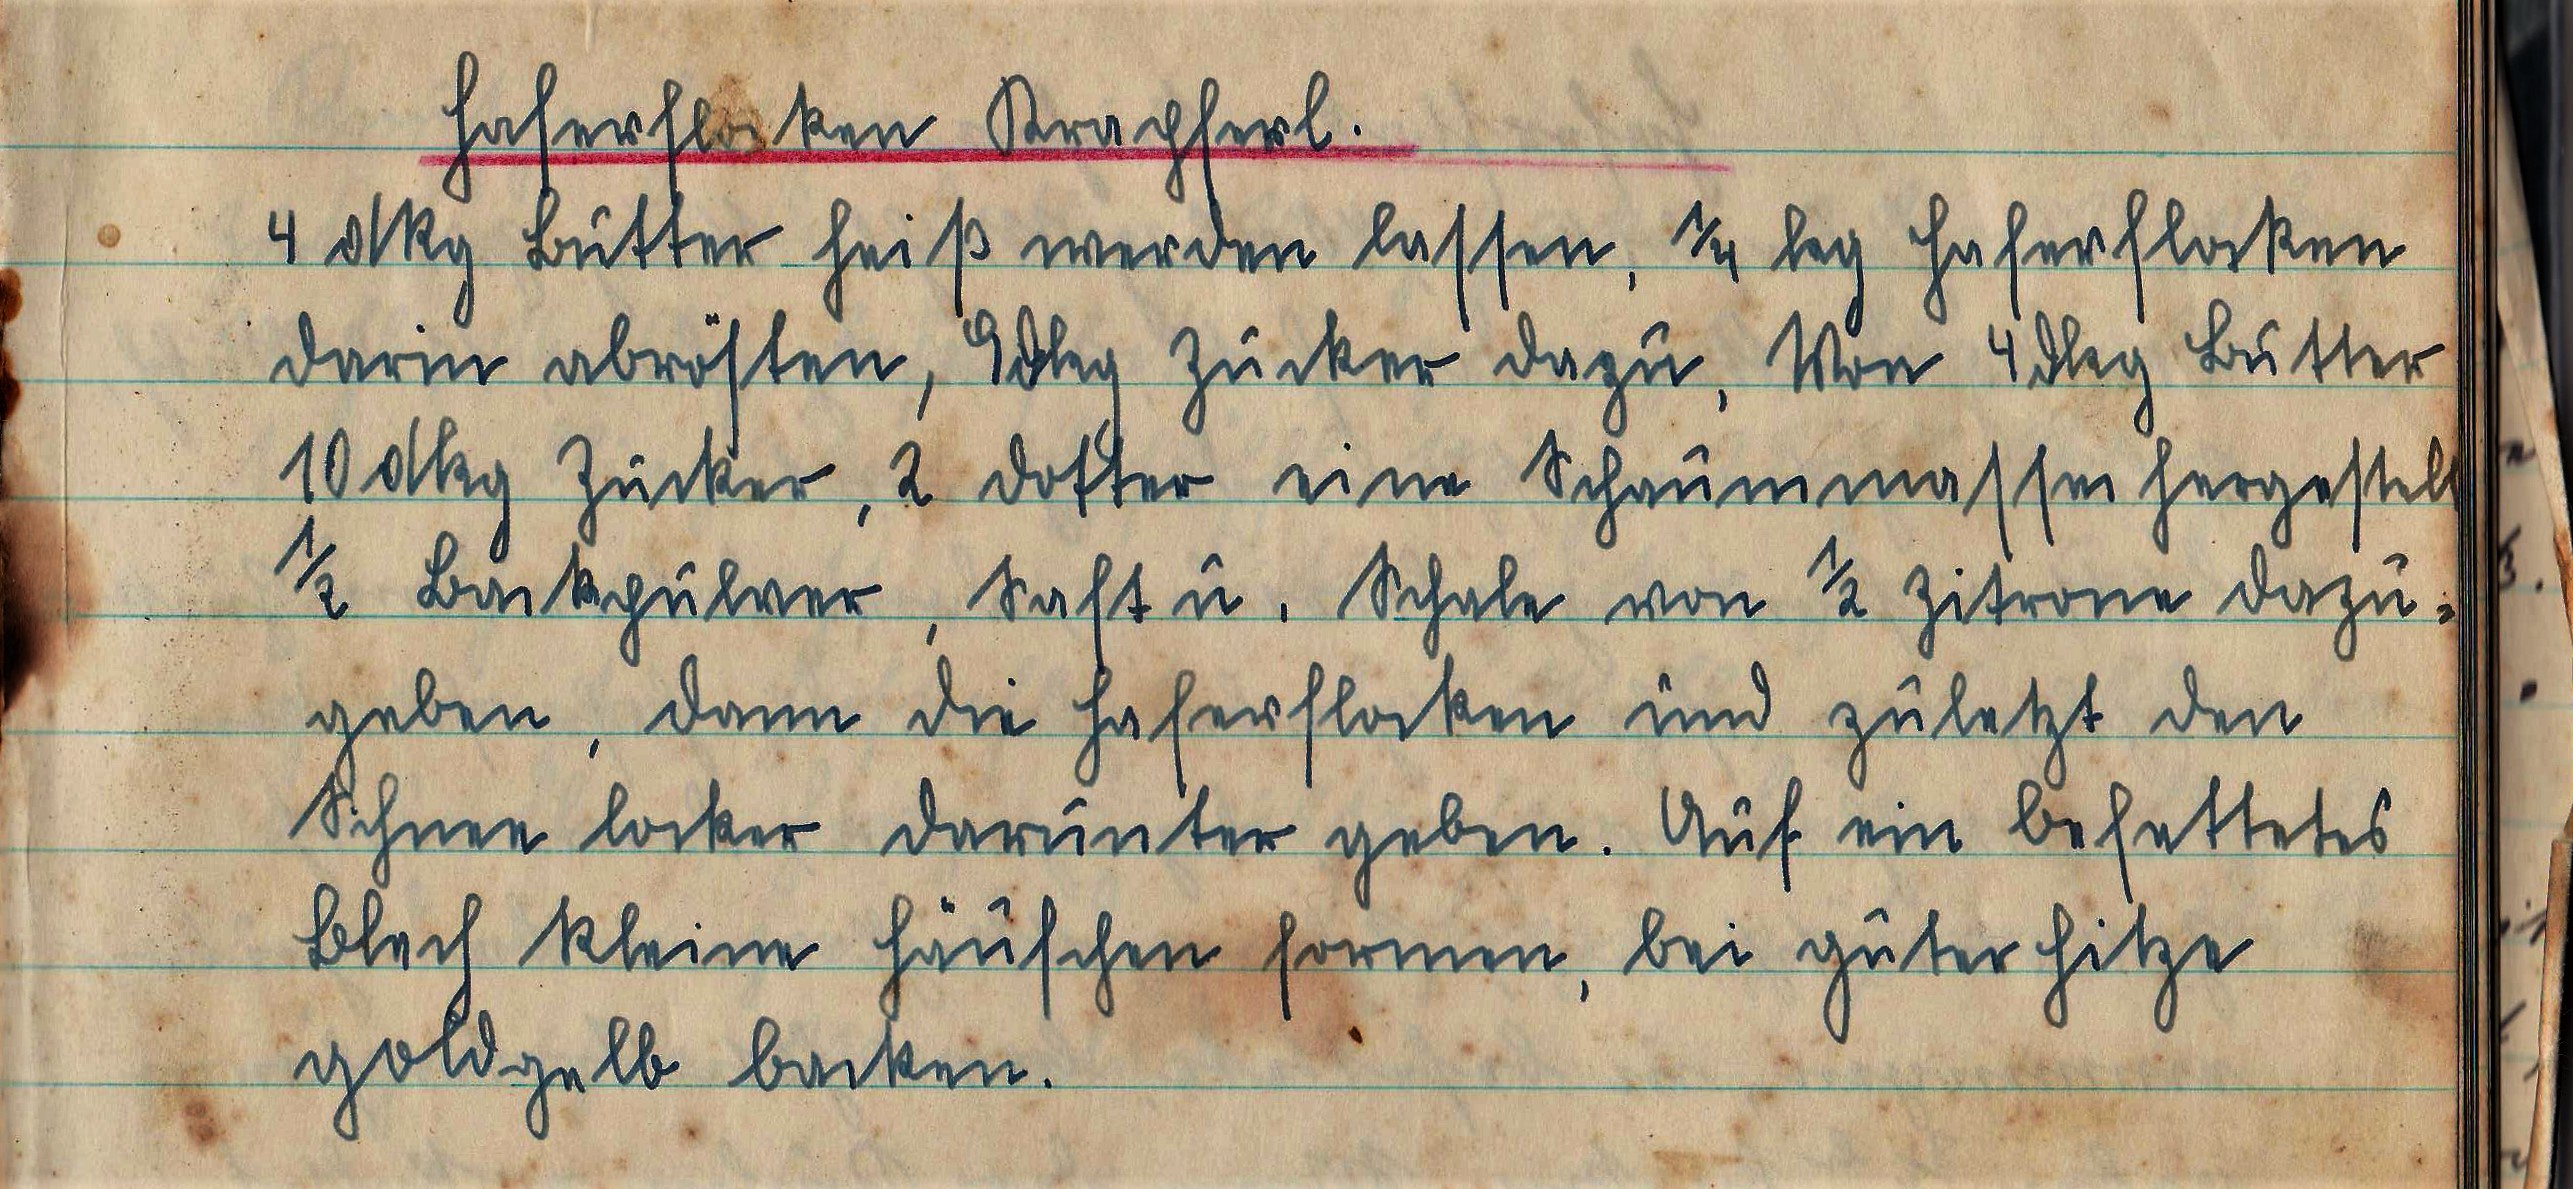 Haferflocken Krapferl.
4 dkg Butter heiß werden lassen, 1/4 kg Haferflocken
darin abrösten, 9 dkg Zucker dazu, Von 4 dkg Butter
10 dkg Zucker, 2 Dotter eine Schaummasse hergestellt
1/2 Backpulver, Saft u. Schale von 1/2 Zitrone dazu-
geben, dann die Haferflocken und zuletzt den
Schnee locker darunter geben. Auf ein befettetes
Blech kleine Häufchen formen, bei guter Hitze
goldgelb backen.